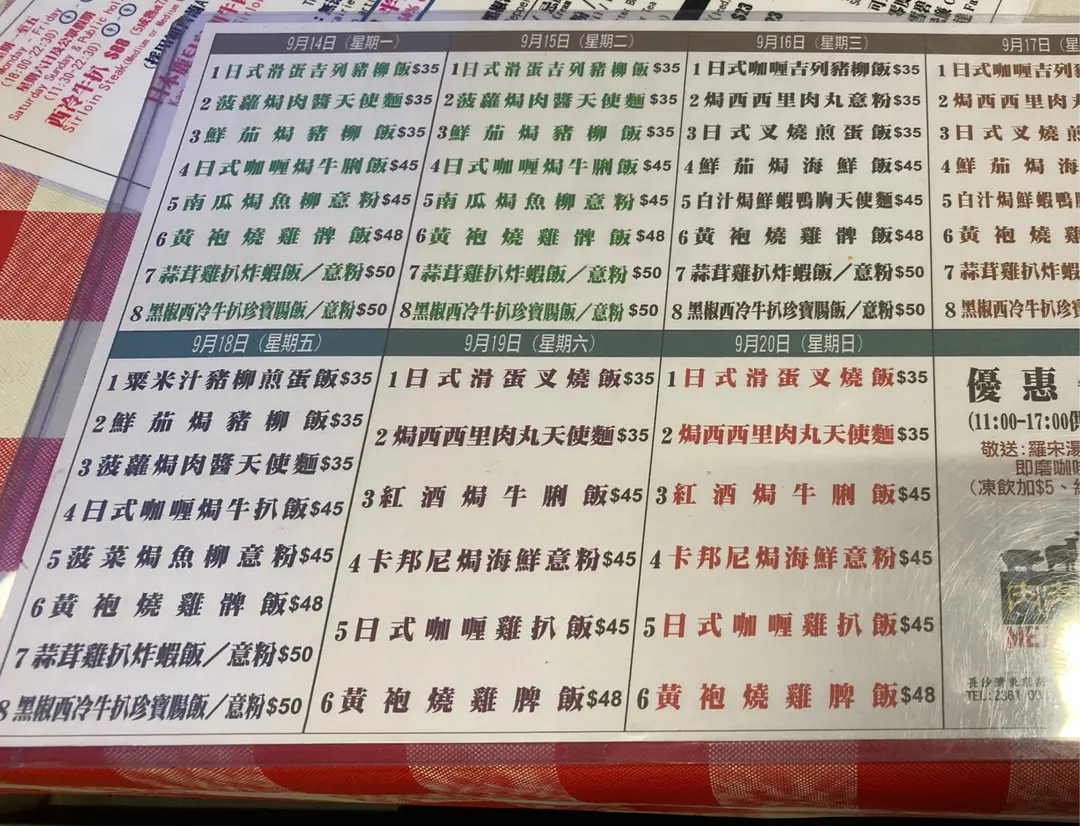 Monday - Friday
(18:00-22:30)
星期六日及公眾假期
Saturday, Sunday & Public
(11:30-22:30)
西冷牛扒 $88
Sirloin Steak (Medium or
9月14日（星期一）
1日式滑蛋吉列豬柳飯$35
2菠蘿焗肉醬天使麵$35
3鮮茄焗豬柳飯$35
4日式咖喱焗牛脷飯$45
5南瓜焗魚柳意粉$45
6黃袍燒雞髀飯$48
7蒜茸雞扒炸蝦飯／意粉$50
8黑椒西冷牛扒珍寶腸飯／意粉$50
9月15日（星期二）
1日式滑蛋吉列豬柳飯$35
2菠蘿焗肉醬天使麵$35
3鮮茄焗豬柳飯$35
4日式咖喱焗牛脷飯$45
5南瓜焗魚柳意粉$45
6黃袍燒雞髀飯$48
7蒜茸雞扒炸蝦飯／意粉$50
8黑椒西冷牛扒珍寶腸飯／意粉$50
9月16日（星期三）
1日式咖喱吉列豬柳飯$35
2焗西西里肉丸意粉$35
3日式叉燒煎蛋飯$35
4鮮茄焗海鮮飯$45
5白汁焗鮮蝦鴨胸天使麵$45
6黃袍燒雞髀飯$48
7蒜茸雞扒炸蝦飯／意粉$50
8黑椒西冷牛扒珍寶腸飯／意粉$50
9月17日（星
1日式咖喱吉列
2焗西西里肉
3日式叉燒
4鮮茄焗海
5白汁焗鮮蝦
6黃袍燒
7蒜茸雞扒炸蝦
8黑椒西冷牛扒珍寶
9月18日（星期五）
1粟米汁豬柳煎蛋飯$35
2鮮茄焗豬柳飯$35
3菠蘿焗肉醬天使麵$35
4日式咖喱焗牛扒飯$45
5菠菜焗魚柳意粉$45
6黃袍燒雞髀飯$48
7蒜茸雞扒炸蝦飯／意粉$50
8黑椒西冷牛扒珍寶腸飯／意粉$50
9月19日（星期六）
1日式滑蛋叉燒飯$35
2焗西西里肉丸天使麵$35
3紅酒焗牛脷飯$45
4卡邦尼焗海鮮意粉$45
5日式咖喱雞扒飯$45
6黃袍燒雞髀飯$48
9月20日（星期日）
1日式滑蛋叉燒飯$35
2焗西西里肉丸天使麵$35
3紅酒焗牛脷飯$45
4卡邦尼焗海鮮意粉$45
5日式咖喱雞扒飯$45
6黃袍燒雞脾飯$48
優惠
(11:00-17:00
敬送:羅宋湯
即磨咖
(凍飲加$5、
長沙灣東京街
TEL:2361